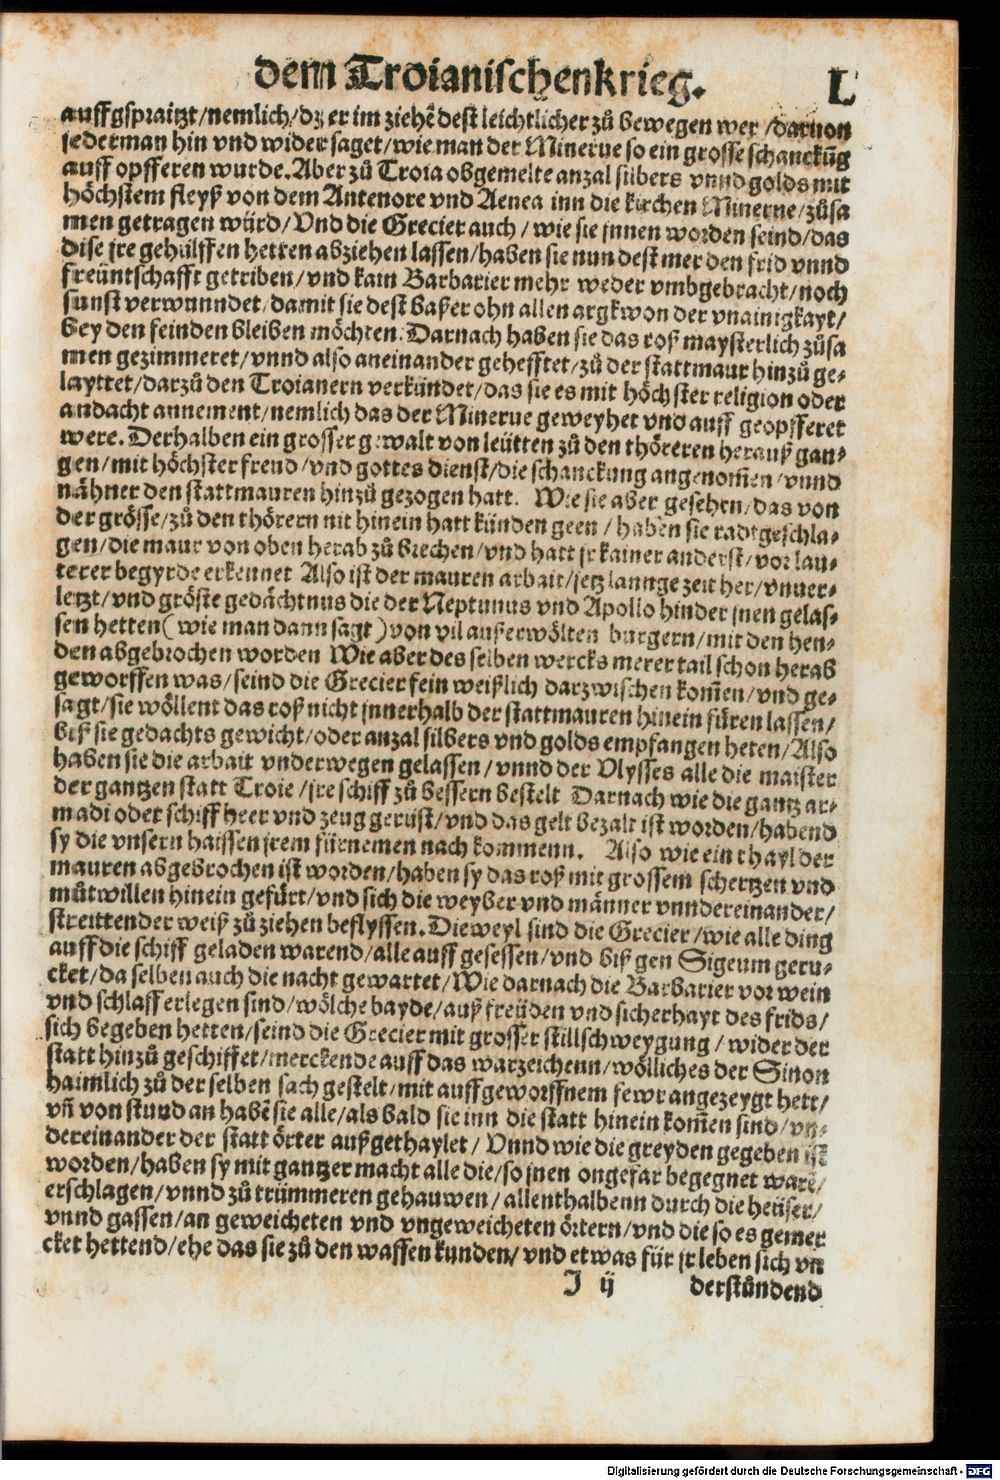 dem Troianischenkrieg. L
auffgspraitzt/nemlich/dz er im ziehē dest leichtlicher zů bewegen wer/daruon
jederman hin vnd wider saget/wie man der Minerue so ein grosse schanckūg
auff opfferen wurde. Aber zů Troia obgemelte anzal silbers vnnd golds mit
höchstem fleyß von dem Antenore vnd Aenea inn die kirchen Minerue/zůsa
men getragen würd/Vnd die Grecier auch/wie sie jnnen worden seind/das
dise jre gehülffen hetten abziehen lassen/haben sie nun dest mer den frid vnnd
freüntschafft getriben/vnd kain Barbarier mehr weder vmbgebracht/noch
sunst verwunndet/damit sie dest baßer ohn allen argkwon der vnainigkayt/
bey den feinden bleiben möchten. Darnach haben sie das roß maysterlich zůsa
men gezimmeret/vnnd also aneinander gehefftet/zů der stattmaur hinzů ge-
layttet/darzů den Troianern verkündet/das sie es mit höchster religion oder
andacht annement/nemlich das der Minerue geweyhet vnd auff geopfferet
were. Derhalben ein grosser gewalt von leütten zů den thöreren herauß gan-
gen/mit höchster freud/vnd gottes dienst/die schanckung angenom̄en/vnnd
nähner den stattmauren hinzů gezogen hatt. Wie sie aber gesehen/das von
der grösse/zů den thörern nit hinein hatt künden geen/haben sie radtgeschla-
gen/die maur von oben herab zů brechen/vnd hatt jr kainer anderst/vor lau-
terer begyrde erkennet Also ist der mauren arbait/jetz lannge zeit her/vnuer-
letzt/vnd gröste gedächtnus die der Neptunus vnd Apollo hinder jnen gelas-
sen hetten(wie man dann sagt)von vil außerwölten burgern/mit den hen-
den abgebrochen worden Wie aber des selben wercks merer tail schon herab
geworffen was/seind die Grecier fein weißlich darzwischen kom̄en/vnd ge-
sagt/sie wöllent das roß nicht jnnerhalb der stattmauren hinein füren lassen/
biß sie gedachts gewicht/oder anzal silbers vnd golds empfangen heten/Also
haben sie die arbait vnderwegen gelassen/vnnd der Vlysses alle die maister
der gantzen statt Troie/jre schiff zů bessern bestelt Darnach wie die gantz ar-
madi oder schiff heer vnd zeug gerüst/vnd das gelt bezalt ist worden/habend
sy die vnsern haissen jrem fürnemen nach kommenn. Also wie ein thayl der
mauren abgebrochen ist worden/haben sy das roß mit grossem schertzen vnd
můtwillen hinein gefürt/vnd sich die weyber vnd männer vnndereinander/
streittender weiß zů ziehen beflyssen. Die weyl sind die Grecier/wie alle ding
auff die schiff geladen warend/alle auff gesessen/vnd biß gen Sigeum geru-
cket/da selben auch die nacht gewartet/Wie darnach die Barbarier vor wein
vnd schlaff erlegen sind/wölche bayde/auß freüden vnd sicherhayt des frids/
sich begeben hetten/seind die Grecier mit grosser stillschweygung/wider der
statt hinzů geschiffet/merckende auff das warzeichenn/wölliches der Sinon
haimlich zů der selben sach gestelt/mit auffgeworffnem fewr angezeygt hett/
vn̄ von stund an habē sie alle/als bald sie inn die statt hinein kom̄en sind/vn-
dereinander der statt örter außgethaylet/Vnnd wie die greyden gegeben ist
worden/haben sy mit gantzer macht alle die/so jnen ongefar begegnet warē/
erschlagen/vnnd zů trümmeren gehauwen/allenthalbenn durch die heüser/
vnnd gassen/an geweicheten vnd vngeweicheten örtern/vnd die so es gemer
cket hettend/ehe das sie zů den waffen kunden/vnd etwas für jr leben sich vn
J ij derstůndend
Digitalisierung gefördert durch die Deutsche Forschungsgemeinschaft - DFG